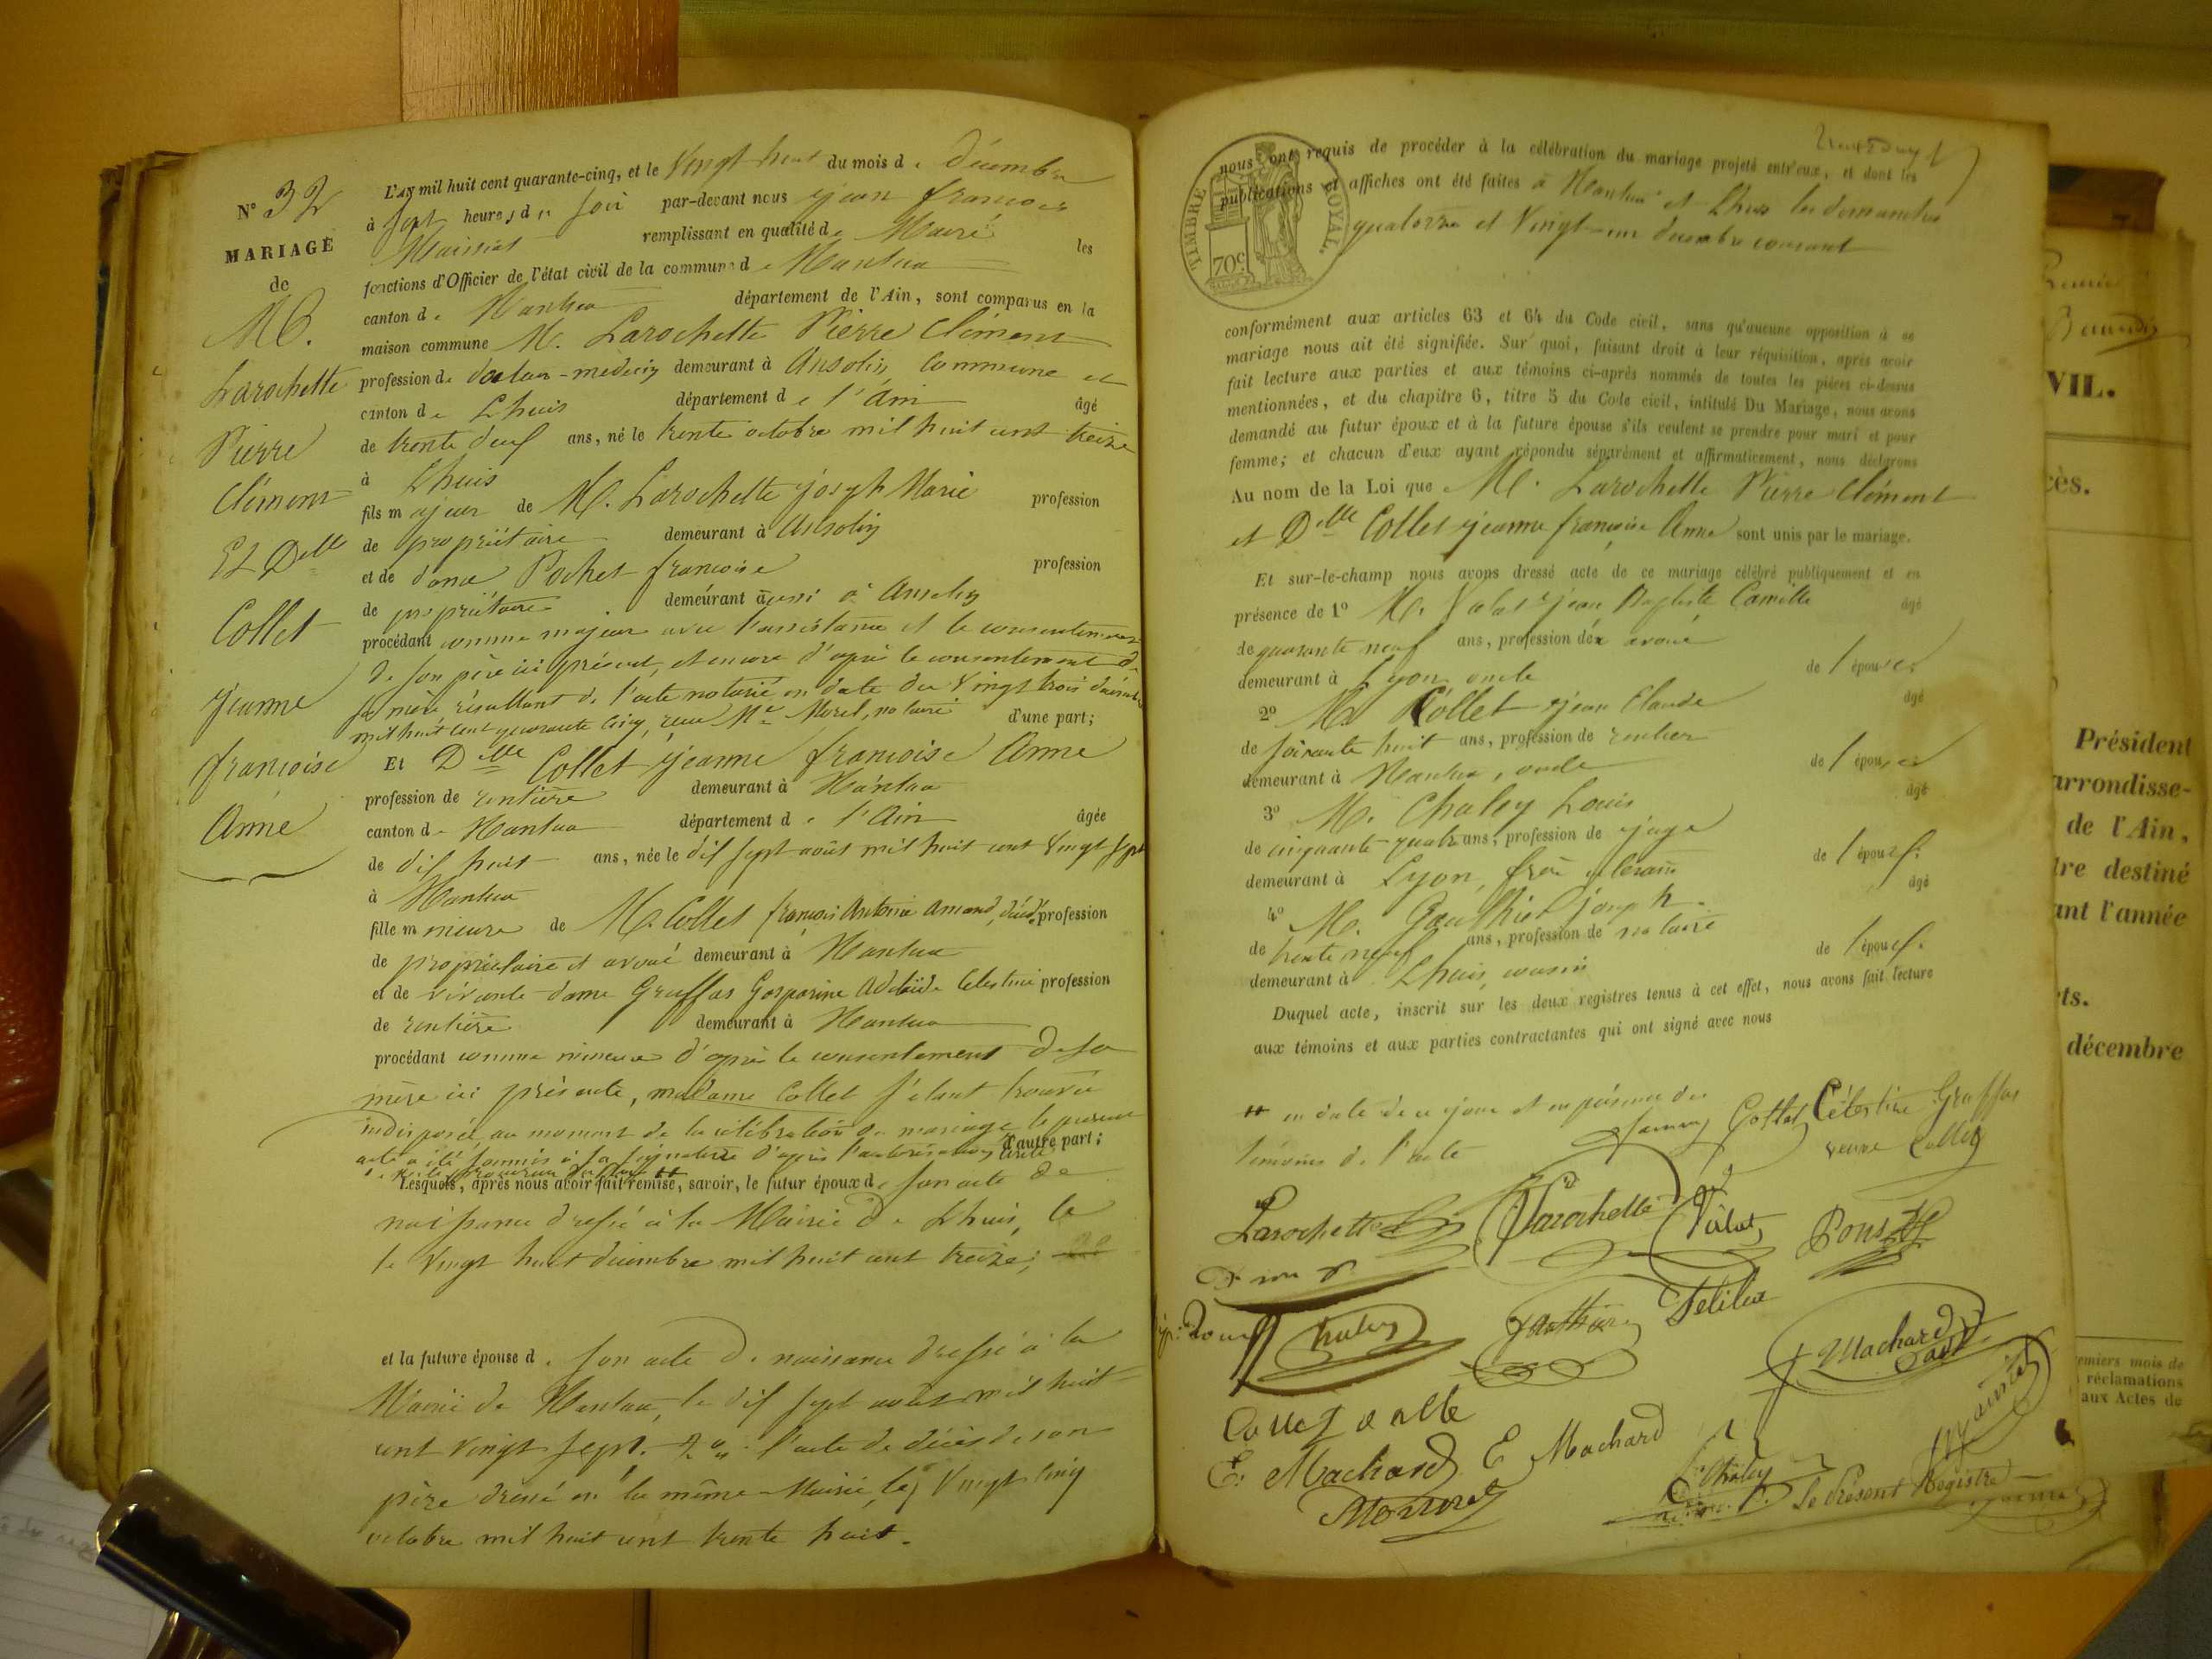 N° 32
MARIAGE
de
M.
Larochette
Pierre
Clément
Et Delle
Collet
jeanne
françoise
Anne
L'AN mil huit cent quarante-cinq, et le Vingt huit du mois de décembre
à sept heures du soir par-devant nous jean françois
Maissiat remplissant en qualité de Maire les
fonctions d'Officier de l'état civil de la commune de Nantua
canton de Nantua département de l'Ain, sont comparus en la
maison commune M. Larochette Pierre Clément
profession de docteur-médecin demeurant à Ansolin Commune et
canton de Lhuis département de l'ain âgé
de trente deux ans, né le trente octobre mil huit cent treize
à Lhuis
fils majeur de M. Larochette joseph Marie profession
de propriétaire demeurant à Ansolin
et de dame Pochet françoise profession
de propriétaire demeurant aussi à Ansolin
procédant comme majeur avec l'assistance et le consentement
de son père ici présent, et encore d'après le consentement de
sa mère résultant de l'acte notarié en date du Vingt trois décembre
mil huit cent quarante cinq, reçu Me Morel, notaire d'une part;
Et Delle Collet jeanne françoise Anne
profession de rentière demeurant à Nantua
canton de Nantua département de l'Ain âgée
de dix huit ans, née le dix sept août mil huit cent Vingt sept
à Nantua
fille mineure de M. Collet françois Antoine Amand, décédé profession
de propriétaire et avoué demeurant à Nantua
et de vivante dame Gruffas Gasparine Adelaïde Celestine profession
de rentière demeurant à Nantua
procédant comme mineure d'après le consentement de sa
mère ici présente, madame Collet s'étant trouvée
indisposée au moment de la célébration du mariage le present
acte a été soumis à sa signature d'après l'autorisation écrite d'autre part;
Lesquels, après nous avoir fait remise, savoir, le futur époux de son acte de
naissance dressé à la Mairie de Lhuis, le
le Vingt huit décembre mil huit cent treize;
et la future épouse de son acte de naissance dressé à la
Mairie de Nantua, le dix sept août mil huit
cent vingt sept. 2° l'acte de décès de son
père dressé en la même Mairie, le Vingt cinq
octobre mil huit cent trente huit.
TIMBRE ROYAL.
70c
nous ont requis de procéder à la célébration du mariage projeté entr'eux, et dont les
publications et affiches ont été faites à Nantua et Lhuis les dimanches
quatorze et Vingt-un décembre courant
conformément aux articles 63 et 64 du Code civil, sans qu'aucune opposition à ce
mariage nous ait été signifiée. Sur quoi, faisant droit à leur réquisition, après avoir
fait lecture aux parties et aux témoins ci-après nommés de toutes les pièces ci-dessus
mentionnées, et du chapitre 6, titre 5 du Code civil, intitulé Du Mariage, nous avons
demandé au futur époux et à la future épouse s'ils veulent se prendre pour mari et pour
femme; et chacun d'eux ayant répondu séparément et affirmativement, nous déclarons
Au nom de la Loi que M. Larochette Pierre Clément
et Delle Collet jeanne françoise Anne sont unis par le mariage.
Et sur-le-champ nous avons dressé acte de ce mariage célébré publiquement et en
présence de 1° M. Valat jean Baptiste Camille âgé
de quarante neuf ans, profession d'ex avoué
demeurant à Lyon oncle de l'épouse
2° M. Collet jean Claude âgé
de soixante huit ans, profession de rentier
demeurant à Nantua, oncle de l'épouse
3° M. Chaley Louis âgé
de cinquante-quatre ans, profession de juge
demeurant à Lyon, frère utérin de l'époux.
4° M. Gauthier joseph. âgé
de trente neuf ans, profession de notaire
demeurant à Lhuis, cousin de l'époux.
Duquel acte, inscrit sur les deux registres tenus à cet effet, nous avons fait lecture
aux témoins et aux parties contractantes qui ont signé avec nous
en date de ce jour et en présence des
témoins de l'acte
Jenny Collet Célestine Gruffas
veuve Collet
Larochette Larochette Valat Pons
Chaley Gauthier Felix
Machard
E. Machard E Machard
Chaley
Le Present Registre
VIL.
cès.
Président
arrondisse-
de l'Ain,
tre destiné
ant l'année
ts.
décembre
emiers mois de
réclamations
aux Actes de